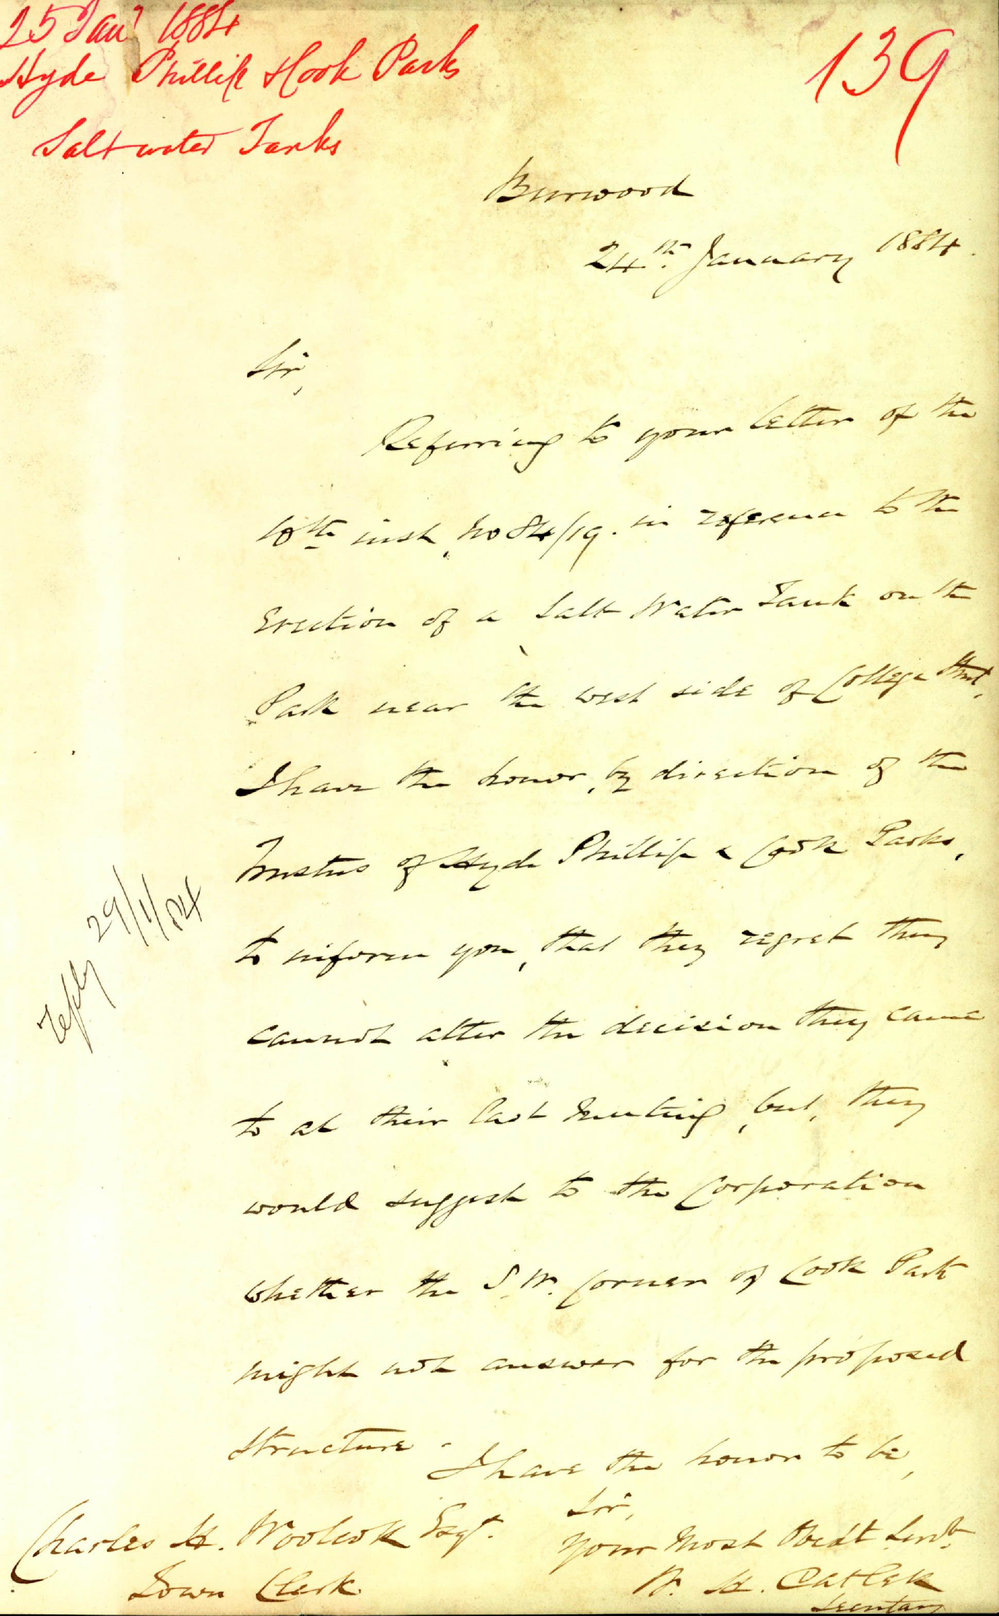 25 Jany 1884
Hyde Phillip & Cook Parks
Saltwater Tanks
139
Burwood
24th January 1884.
Sir,
Referring to your letter of the
10th inst, No 84/19. in reference to the
Erection of a Salt Water Tank on the
Park near the west side of College Street,
I have the honor, by direction of the
Trustees of Hyde Phillip & Cook Parks,
to inform you, that they regret they
cannot alter the decision they came
to at their last Meeting, but, they
would suggest to the Corporation
whether the S.W. Corner of Cook Park
might not answer for the proposed
Structure.
I have the honor to be,
Sir,
Your Most Obedt Servt.
W. H. Catlett
Secretary
Charles H. Woolcott Esqr.
Town Clerk.
reply 29/1/84